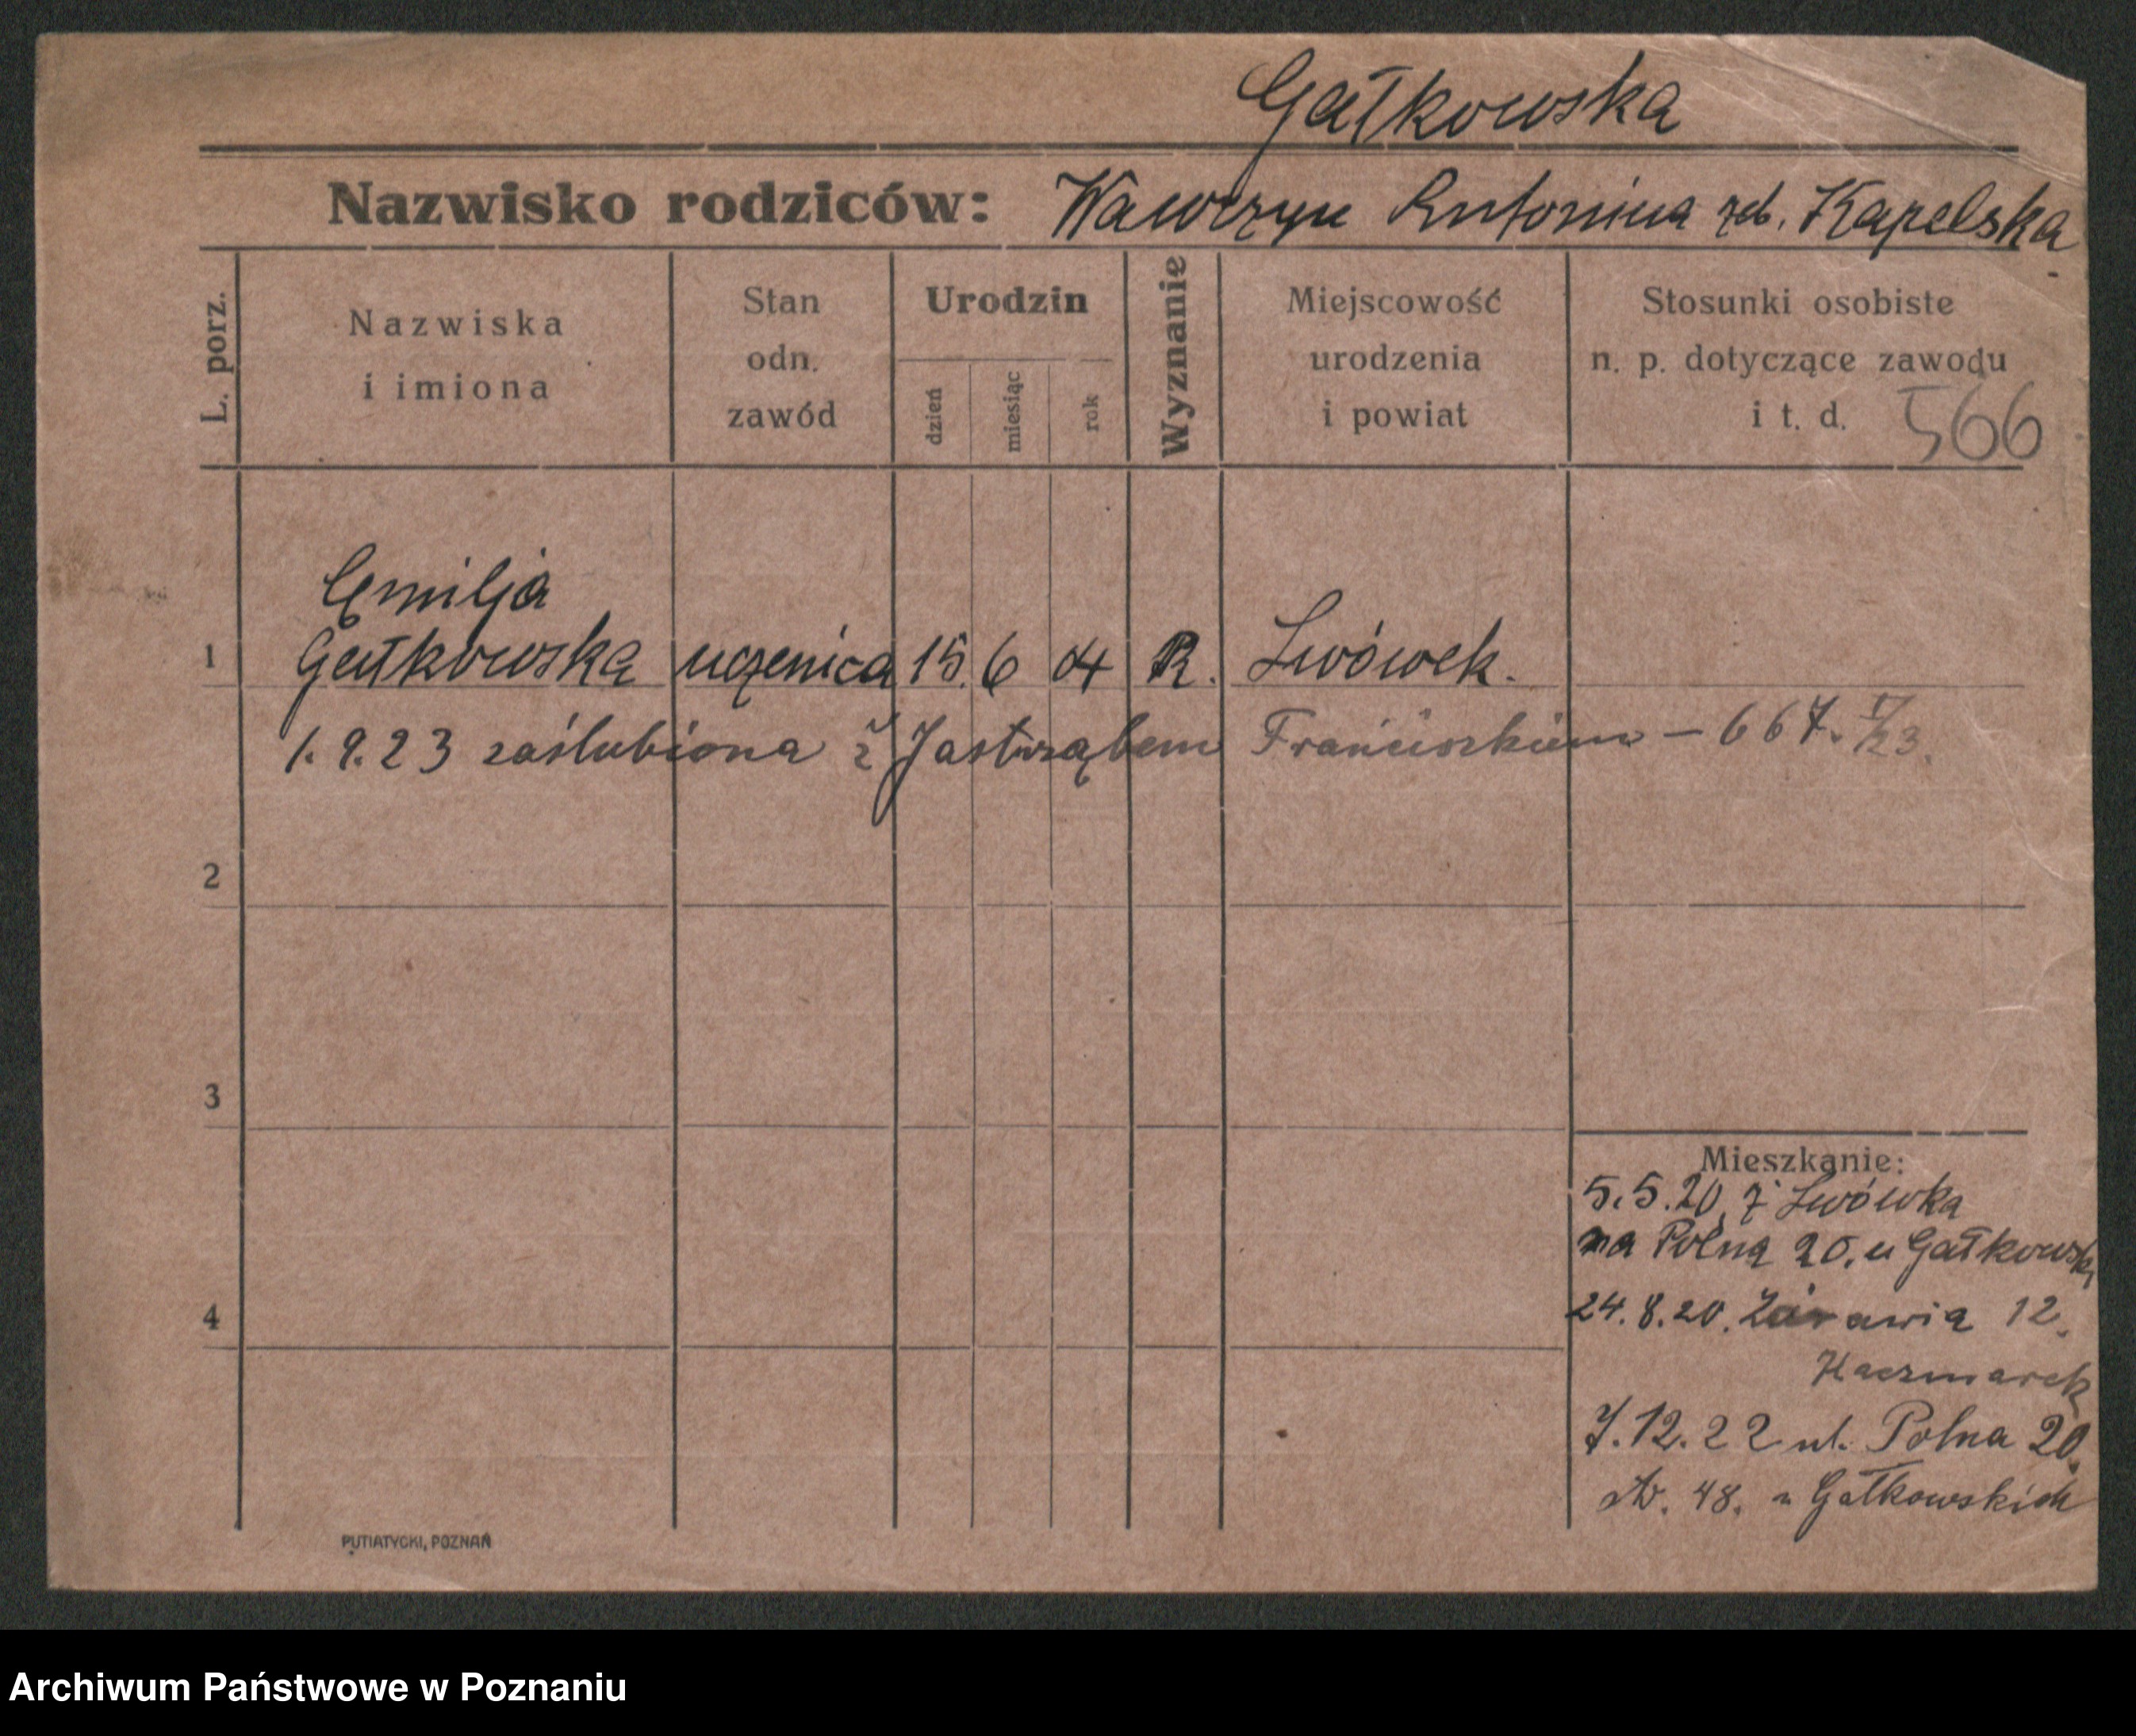 Gałkowska
Nazwisko rodziców: Wawrzyn Antonina Kapelska
L. porz.
Nazwiska i imiona
Stan odn. zawód
Urodzin
dzień
miesiąc
rok
Wyznanie
Miejscowość urodzenia i powiat
Stosunki osobiste n. p. dotyczące zawodu i t. d.
566
Emilja
1 Gałkowska uczenica 15. 6 04 R. Lwówek.
1.9.23 zaślubiona z Jastrząbem Franciszkiem – 667.
2
3
4
Mieszkanie:
5.5.20, z Lwówka
na Polną 20. u Gałkowski
24.8.20. 12.
Kaczmarek
7.12.22 ul. Polna 20.
48. u Gałkowskich
PUTIATYCKI, POZNAŃ
Archiwum Państwowe w Poznaniu